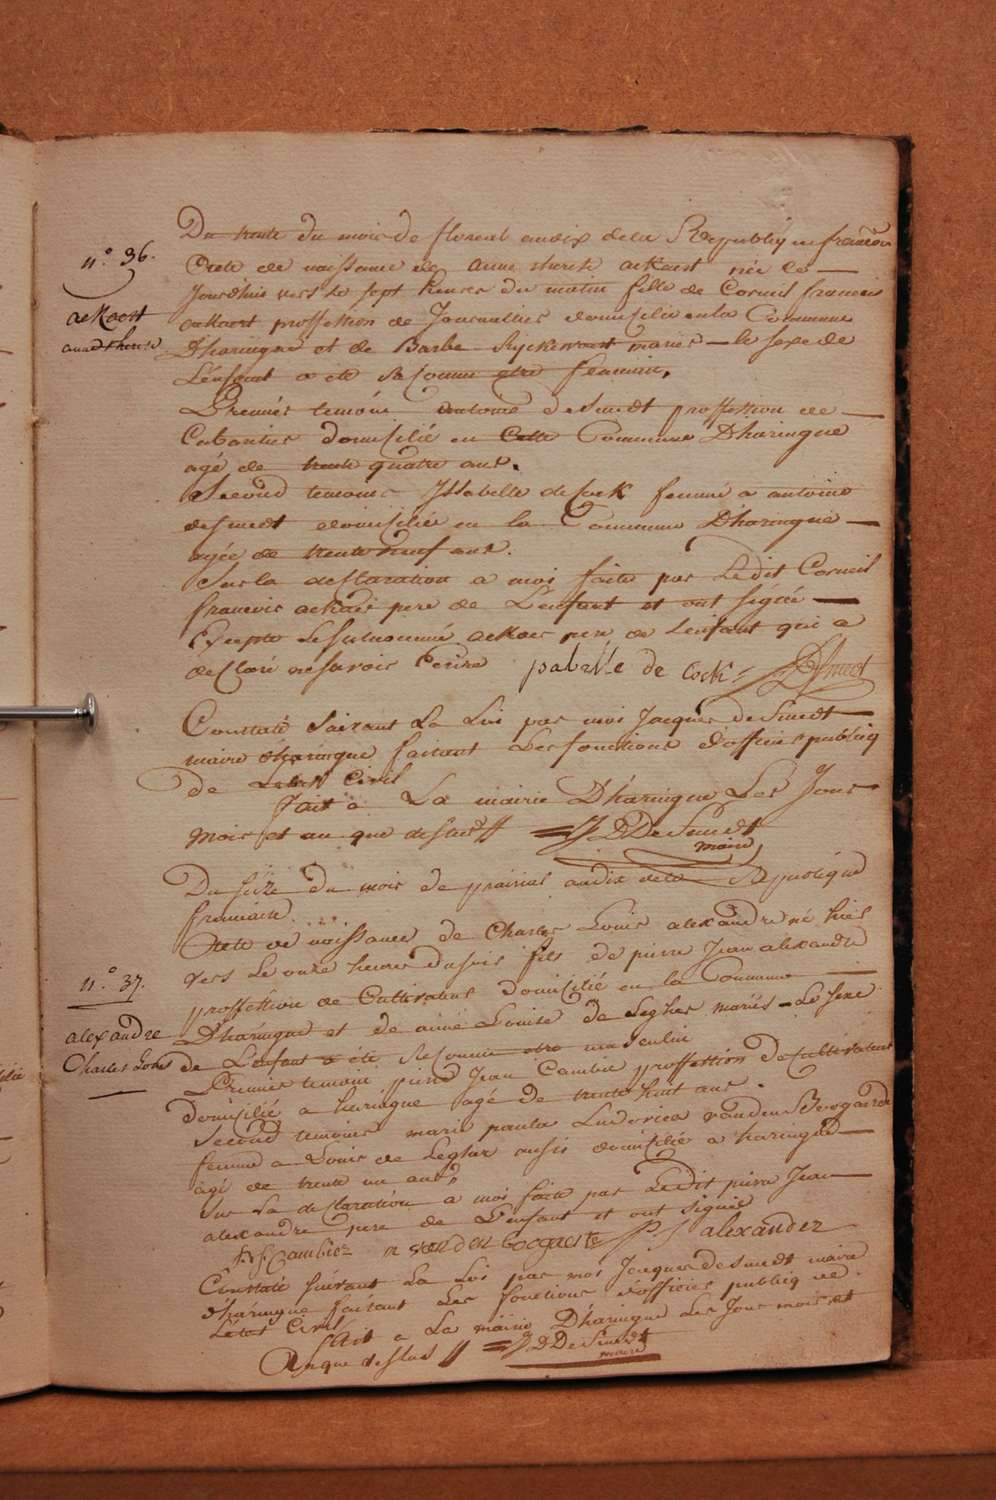 n.° 36.
ackaert
anne therese
Du trente du mois de floreal an dix de la Republiq ue francoise
Acte de naissance de anne therese ackaert née ce
Jourdhuis vers le sept heures du matin fille de Corneil francois
ackaert proffession de Journallier domicilié en la Commune
Dharingue et de Barbe Ryckewaert mariés le sexe de
L'enfant a été reconnu etre feminin.
Premier temoin antoine deSmedt proffession de
Cabartier domicilié en Cette Commune Dharingue
agé de trente quatre ans.
Second temoin Issabelle decock femme a antoine
desmedt domicilié en la Commune Dharingue
agée de trente neuf ans.
Sur la declaration a moi faite par Ledit Corneil
francois ackaert pere de L'enfant et ont signée
Excepte Le surnommé ackaer pere de Lenfant qui a
declaré ne savoir Ecrire isabelle de Cock DSmedt
Constaté Suivant La Loi par moi Jacques deSmedt
maire dharingue faisant Les fonctions d'officier publicq
De Letat Civil
Fait a La mairie Dharingue Les Jour
mois et an que dessus // JDDeSmedt
maire
Du seize du mois de prairial an dix de la Republique
francaise
Acte de naissance de Charles Louis alexandre né hier
vers Le onze heures du soir fils de pierre Jean alexandre
n.° 37.
proffession de Cultivateur domicilié en la Commune
alexandre
Charles Louis
Dharingue et de anne Louise de Legher mariés Le sexe
de L'enfant a été Reconnu etre masculin
Premier temoin pierre Jean Cambie proffession de cultivateur
domicilié a haringue agé de trente huit ans.
Second temoin marie paula Ludovica vanden Bogaerde
femme a Louis de Legher aussi domicilié a haringue
agé de trente un ans
Sur La declaration a moi faite par Ledit pierre Jean
alexandre pere de L'enfant et ont signée
Cambie vanden bogaerde PJ alexander
Constaté suivant La Loi par moi Jacques deSmedt maire
dharingue faisant Les fonctions d'officier publicq de
L'etat Civil
Fait a La mairie Dharingue Les Jour mois et
An que dessus // JDDeSmedt
maire